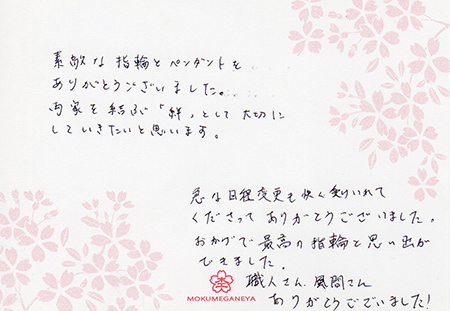 素敵な指輪とペンダントを
ありがとうございました。
両家を結ぶ「絆」として大切に
していきたいと思います。
急な日程変更も快く受けいれて
くださってありがとうございました。
おかげで最高の指輪と思い出が
できました。
職人さん、風間さん
ありがとうございました!
MOKUMEGANEYA